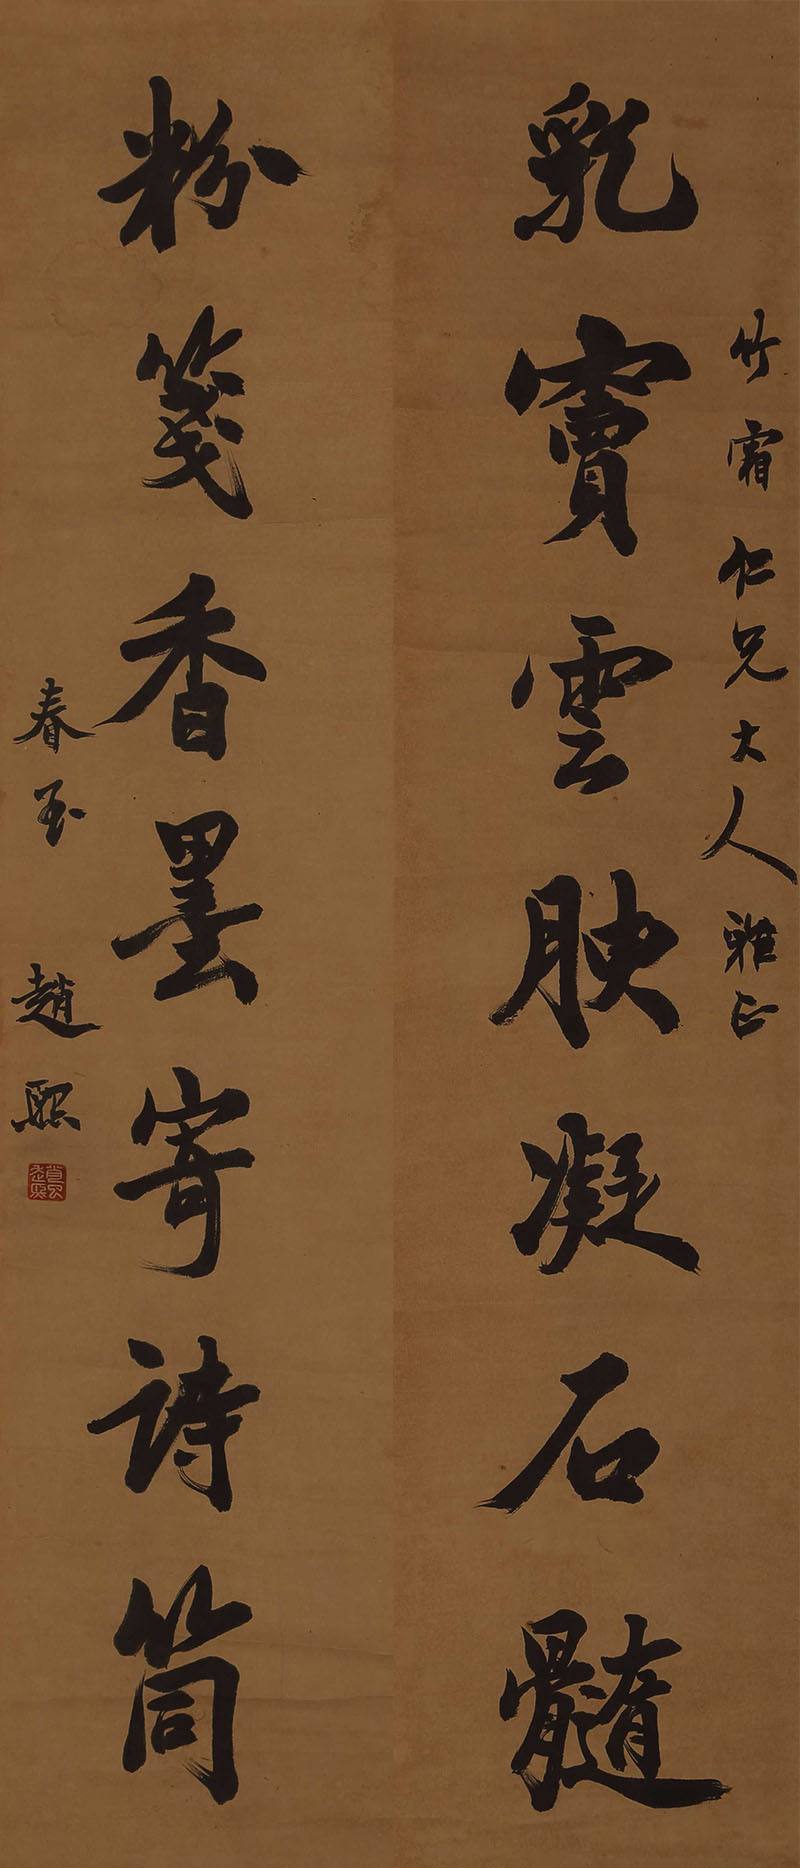 竹霜仁兄大人雅正
乳竇雲腴凝石髓
粉箋香墨寄詩筒
趙熙